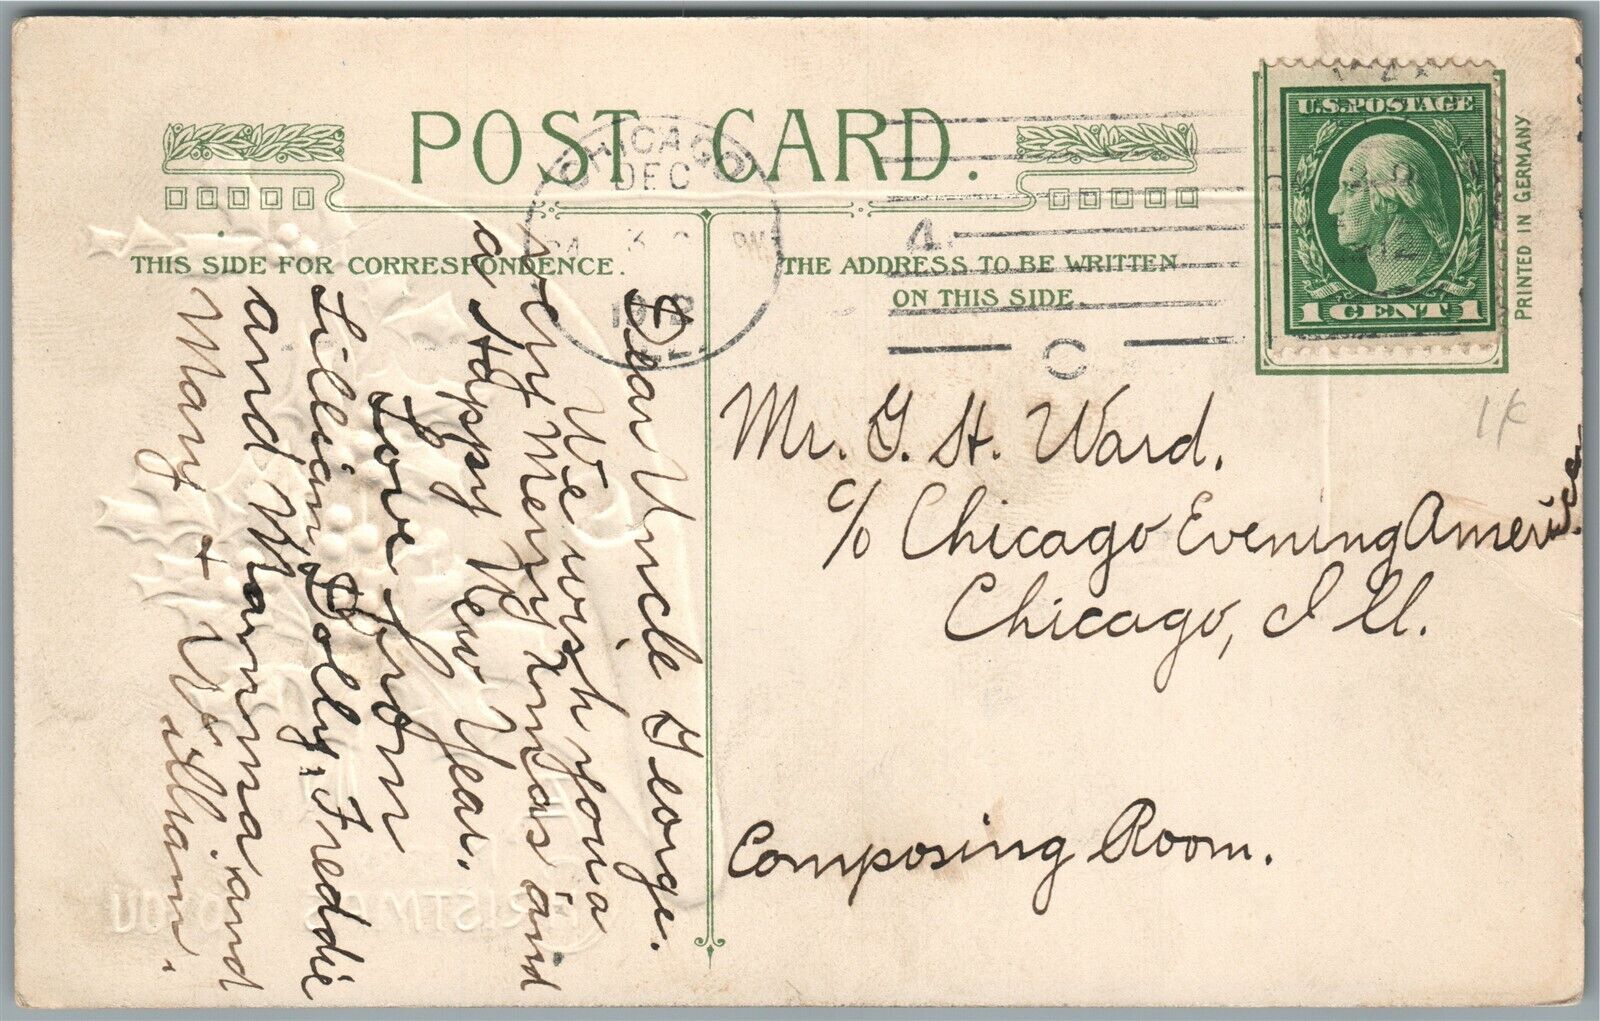 POST CARD.
THIS SIDE FOR CORRESPONDENCE.
THE ADDRESS TO BE WRITTEN
ON THIS SIDE.
U.S. POSTAGE
1 CENT 1
PRINTED IN GERMANY
CHICAGO
DEC
4
C
1K
Dear Uncle George.
We wish you a
very Merry Xmas and
a Happy New Year.
Love from
Lillian, Dolly, Freddie
and Mamma, and
Mary + William.
Mr. G. H. Ward.
c/o Chicago Evening American
Chicago, Ill.
Composing Room.